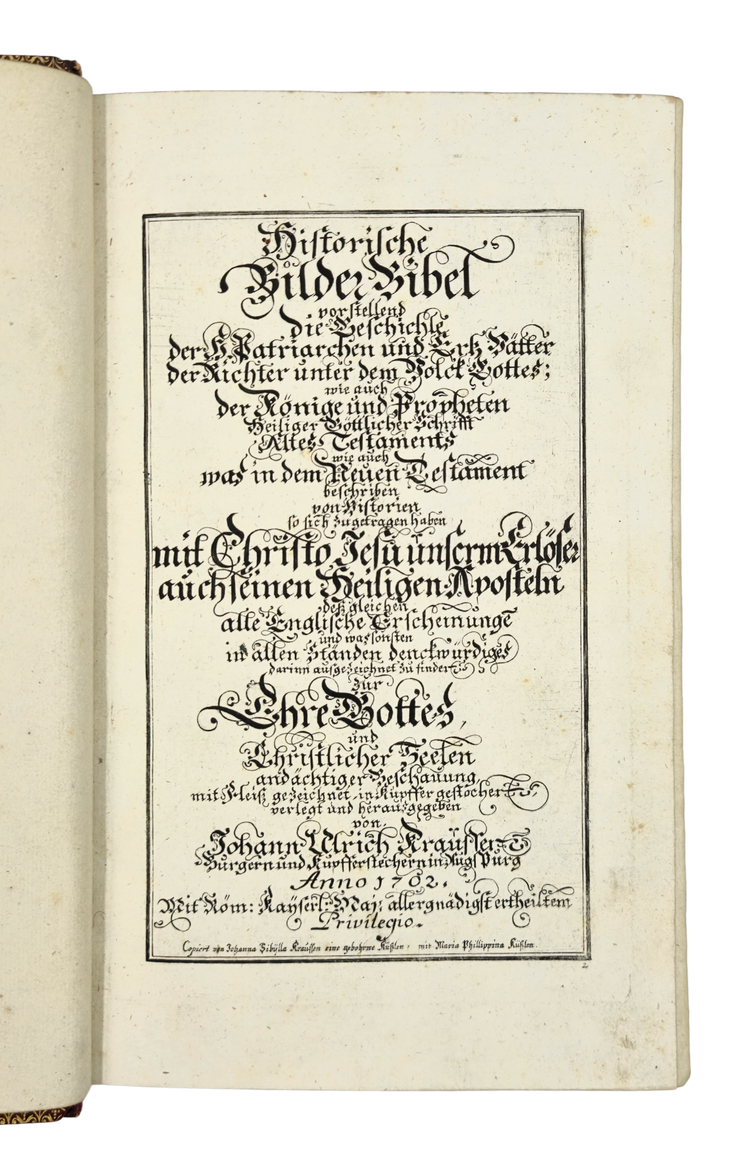 Historische
Bilder Bibel
vorstellend
die Geschichte
der H. Patriarchen und Ertz Vätter
der Richter unter dem Volck Gottes;
wie auch
der Könige und Propheten
Heiliger Göttlicher Schrifft
Altes Testaments
wie auch
was in dem Neuen Testament
beschriben
von Historien
so sich zugetragen haben
mit Christo Jesu unserm Erlöser
auch seinen Heiligen Aposteln
deßgleichen
alle Englische Erscheinunge
und was sonsten
in allen Ständen denckwürdiges
darinn ausgezeichnet zu finden
Zur
Ehre Gottes,
und
Christlicher Seelen
andächtiger Beschauung
mit Fleiß gezeichnet, in Kupffer gestochen
verlegt und herausgegeben
von
Johann Ulrich Kraussen
Burgern und Kupfferstechern in Augspurg
Anno 1702.
Mit Röm: Kayserl: Maj: allergnädigst ertheiltem
Privilegio.
Copiert von Johanna Sibylla Kraussen eine gebohrne Küßlen, mit Maria Phillippina Küßlen